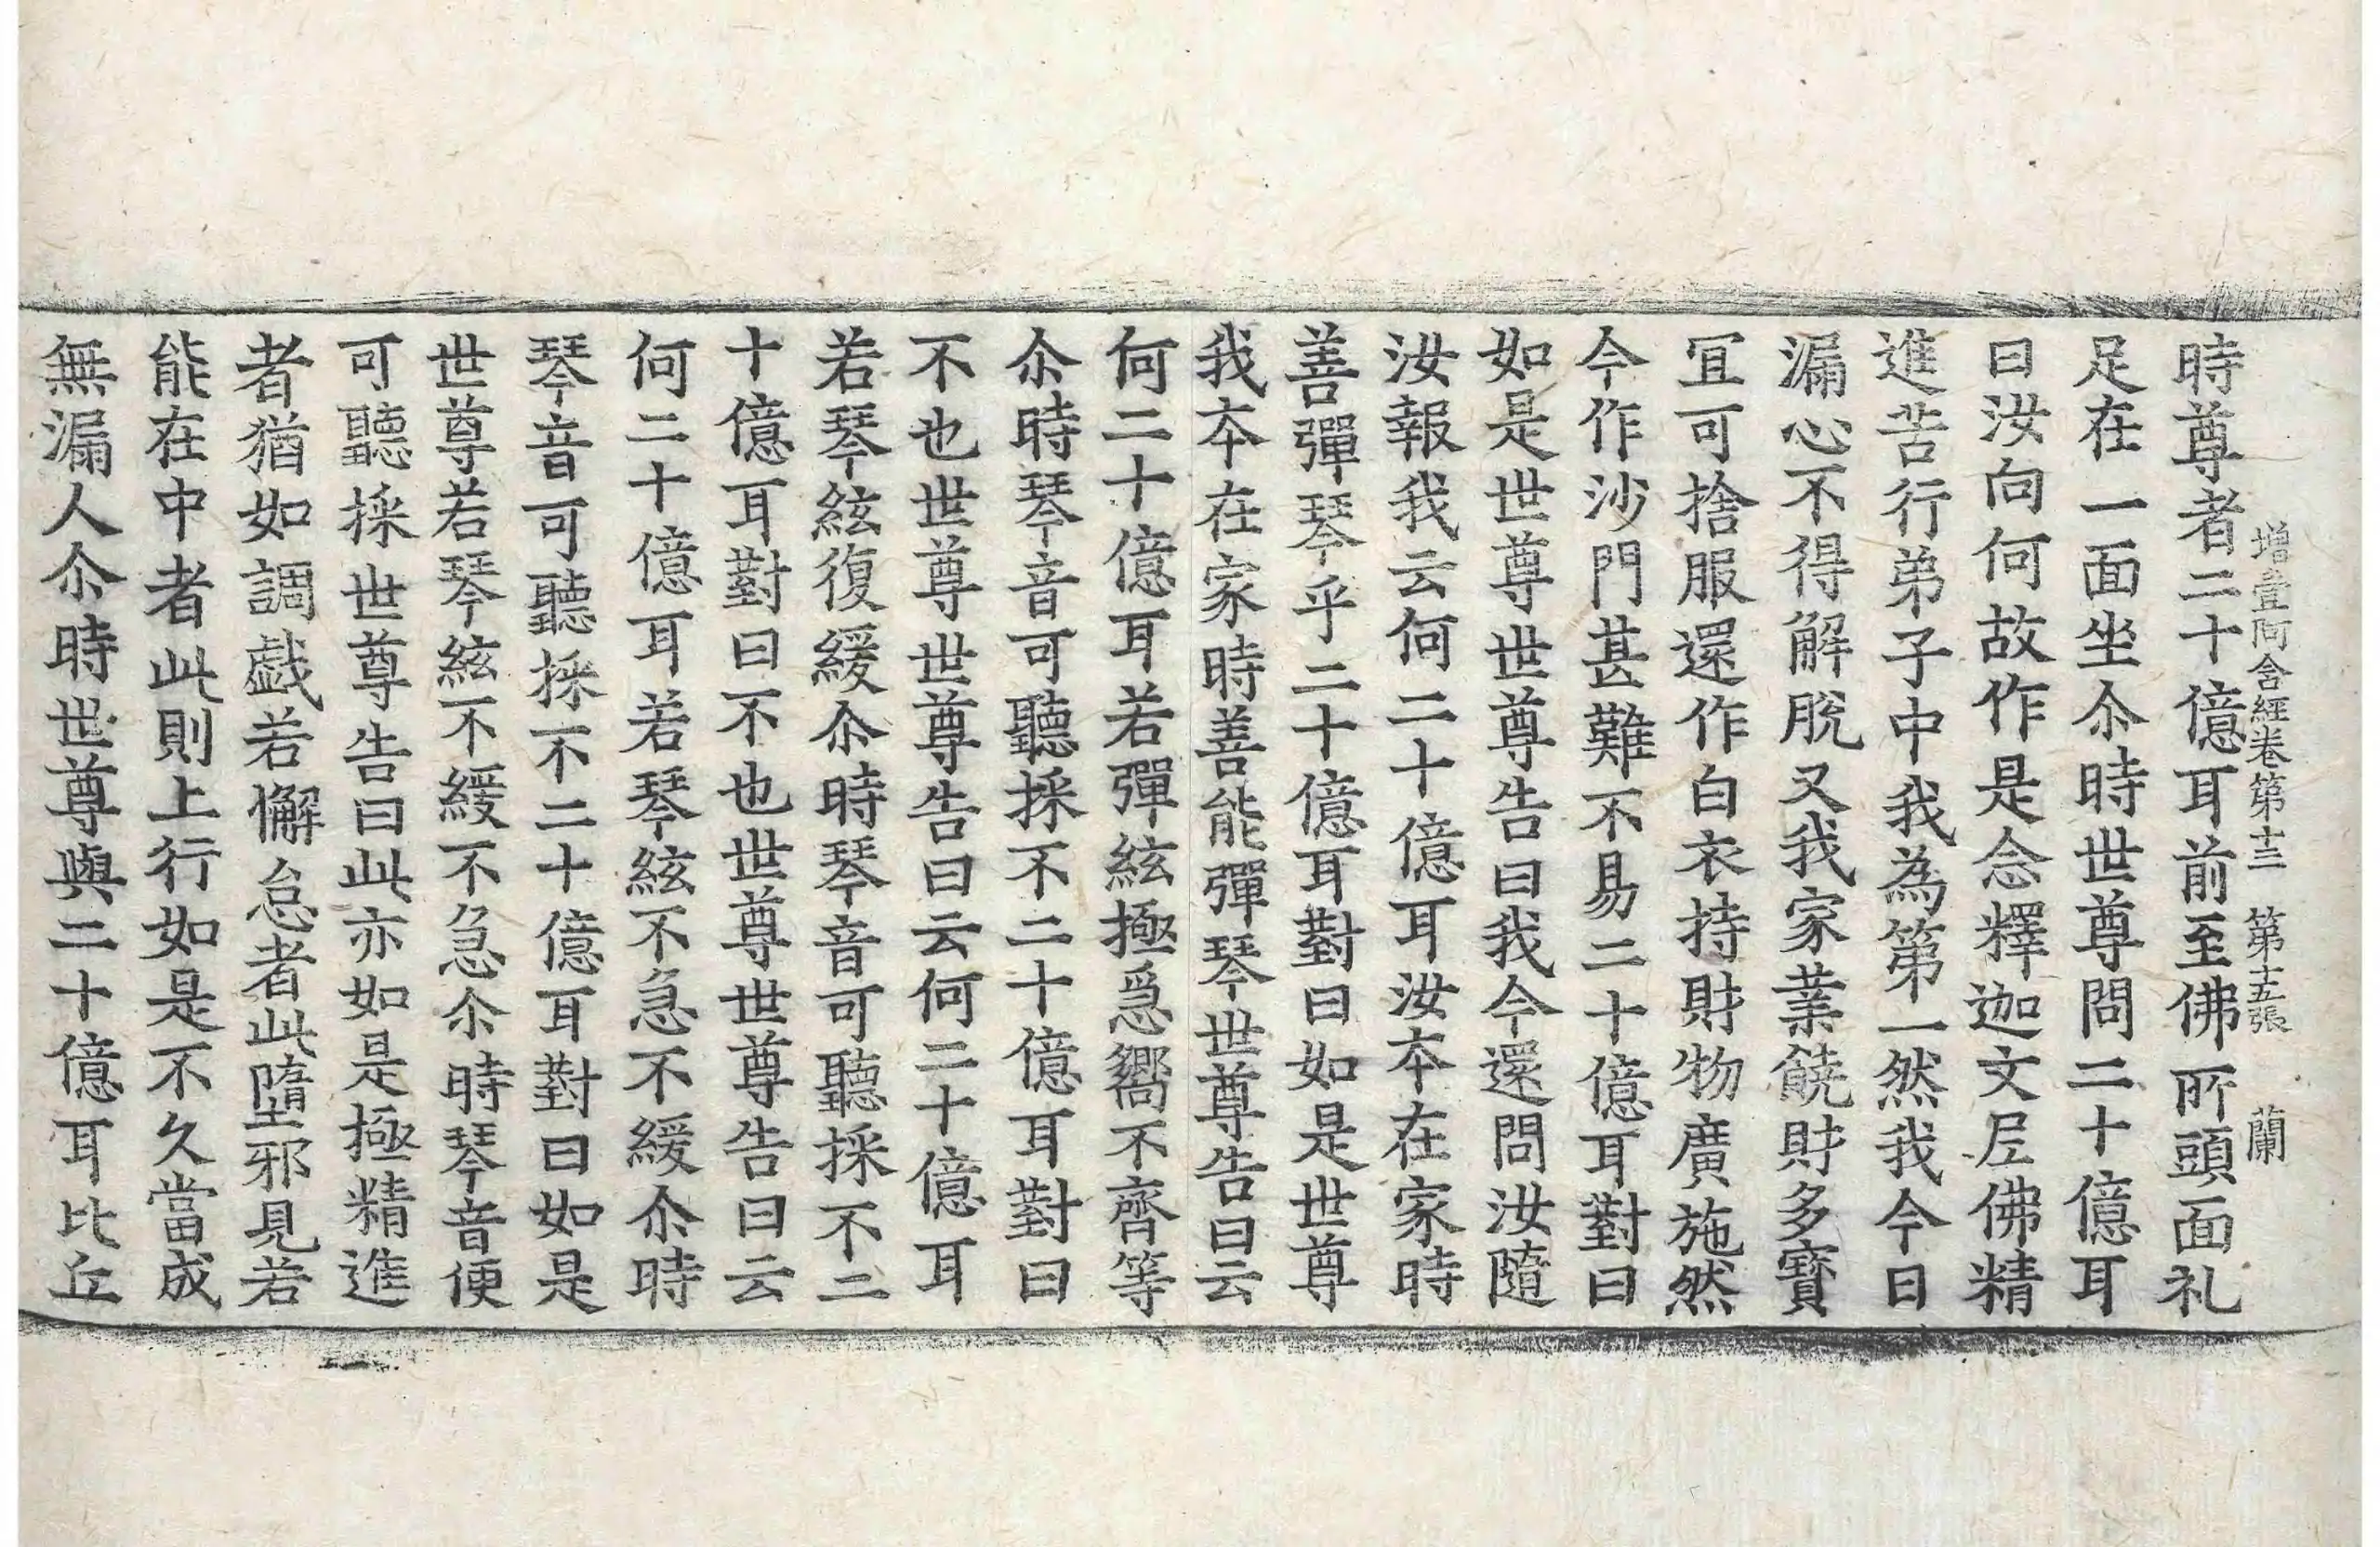 增壹阿含經卷第十三　第十五張　蘭
時尊者二十億耳前至佛所頭面礼
足在一面坐尒時世尊問二十億耳
曰汝向何故作是念釋迦文尼佛精
進苦行弟子中我為第一然我今日
漏心不得解脫又我家業饒財多寶
冝可捨服還作白衣持財物廣施然
今作沙門甚難不易二十億耳對曰
如是世尊世尊告曰我今還問汝隨
汝報我云何二十億耳汝本在家時
善彈琴乎二十億耳對曰如是世尊
我本在家時善能彈琴世尊告曰云
何二十億耳若彈絃極急嚮不齊等
尒時琴音可聽採不二十億耳對曰
不也世尊世尊告曰云何二十億耳
若琴絃復緩尒時琴音可聽採不二
十億耳對曰不也世尊世尊告曰云
何二十億耳若琴絃不急不緩尒時
琴音可聽採不二十億耳對曰如是
世尊若琴絃不緩不急尒時琴音便
可聽採世尊告曰此亦如是極精進
者猶如調戲若懈怠者此墮邪見若
能在中者此則上行如是不久當成
無漏人尒時世尊與二十億耳比丘